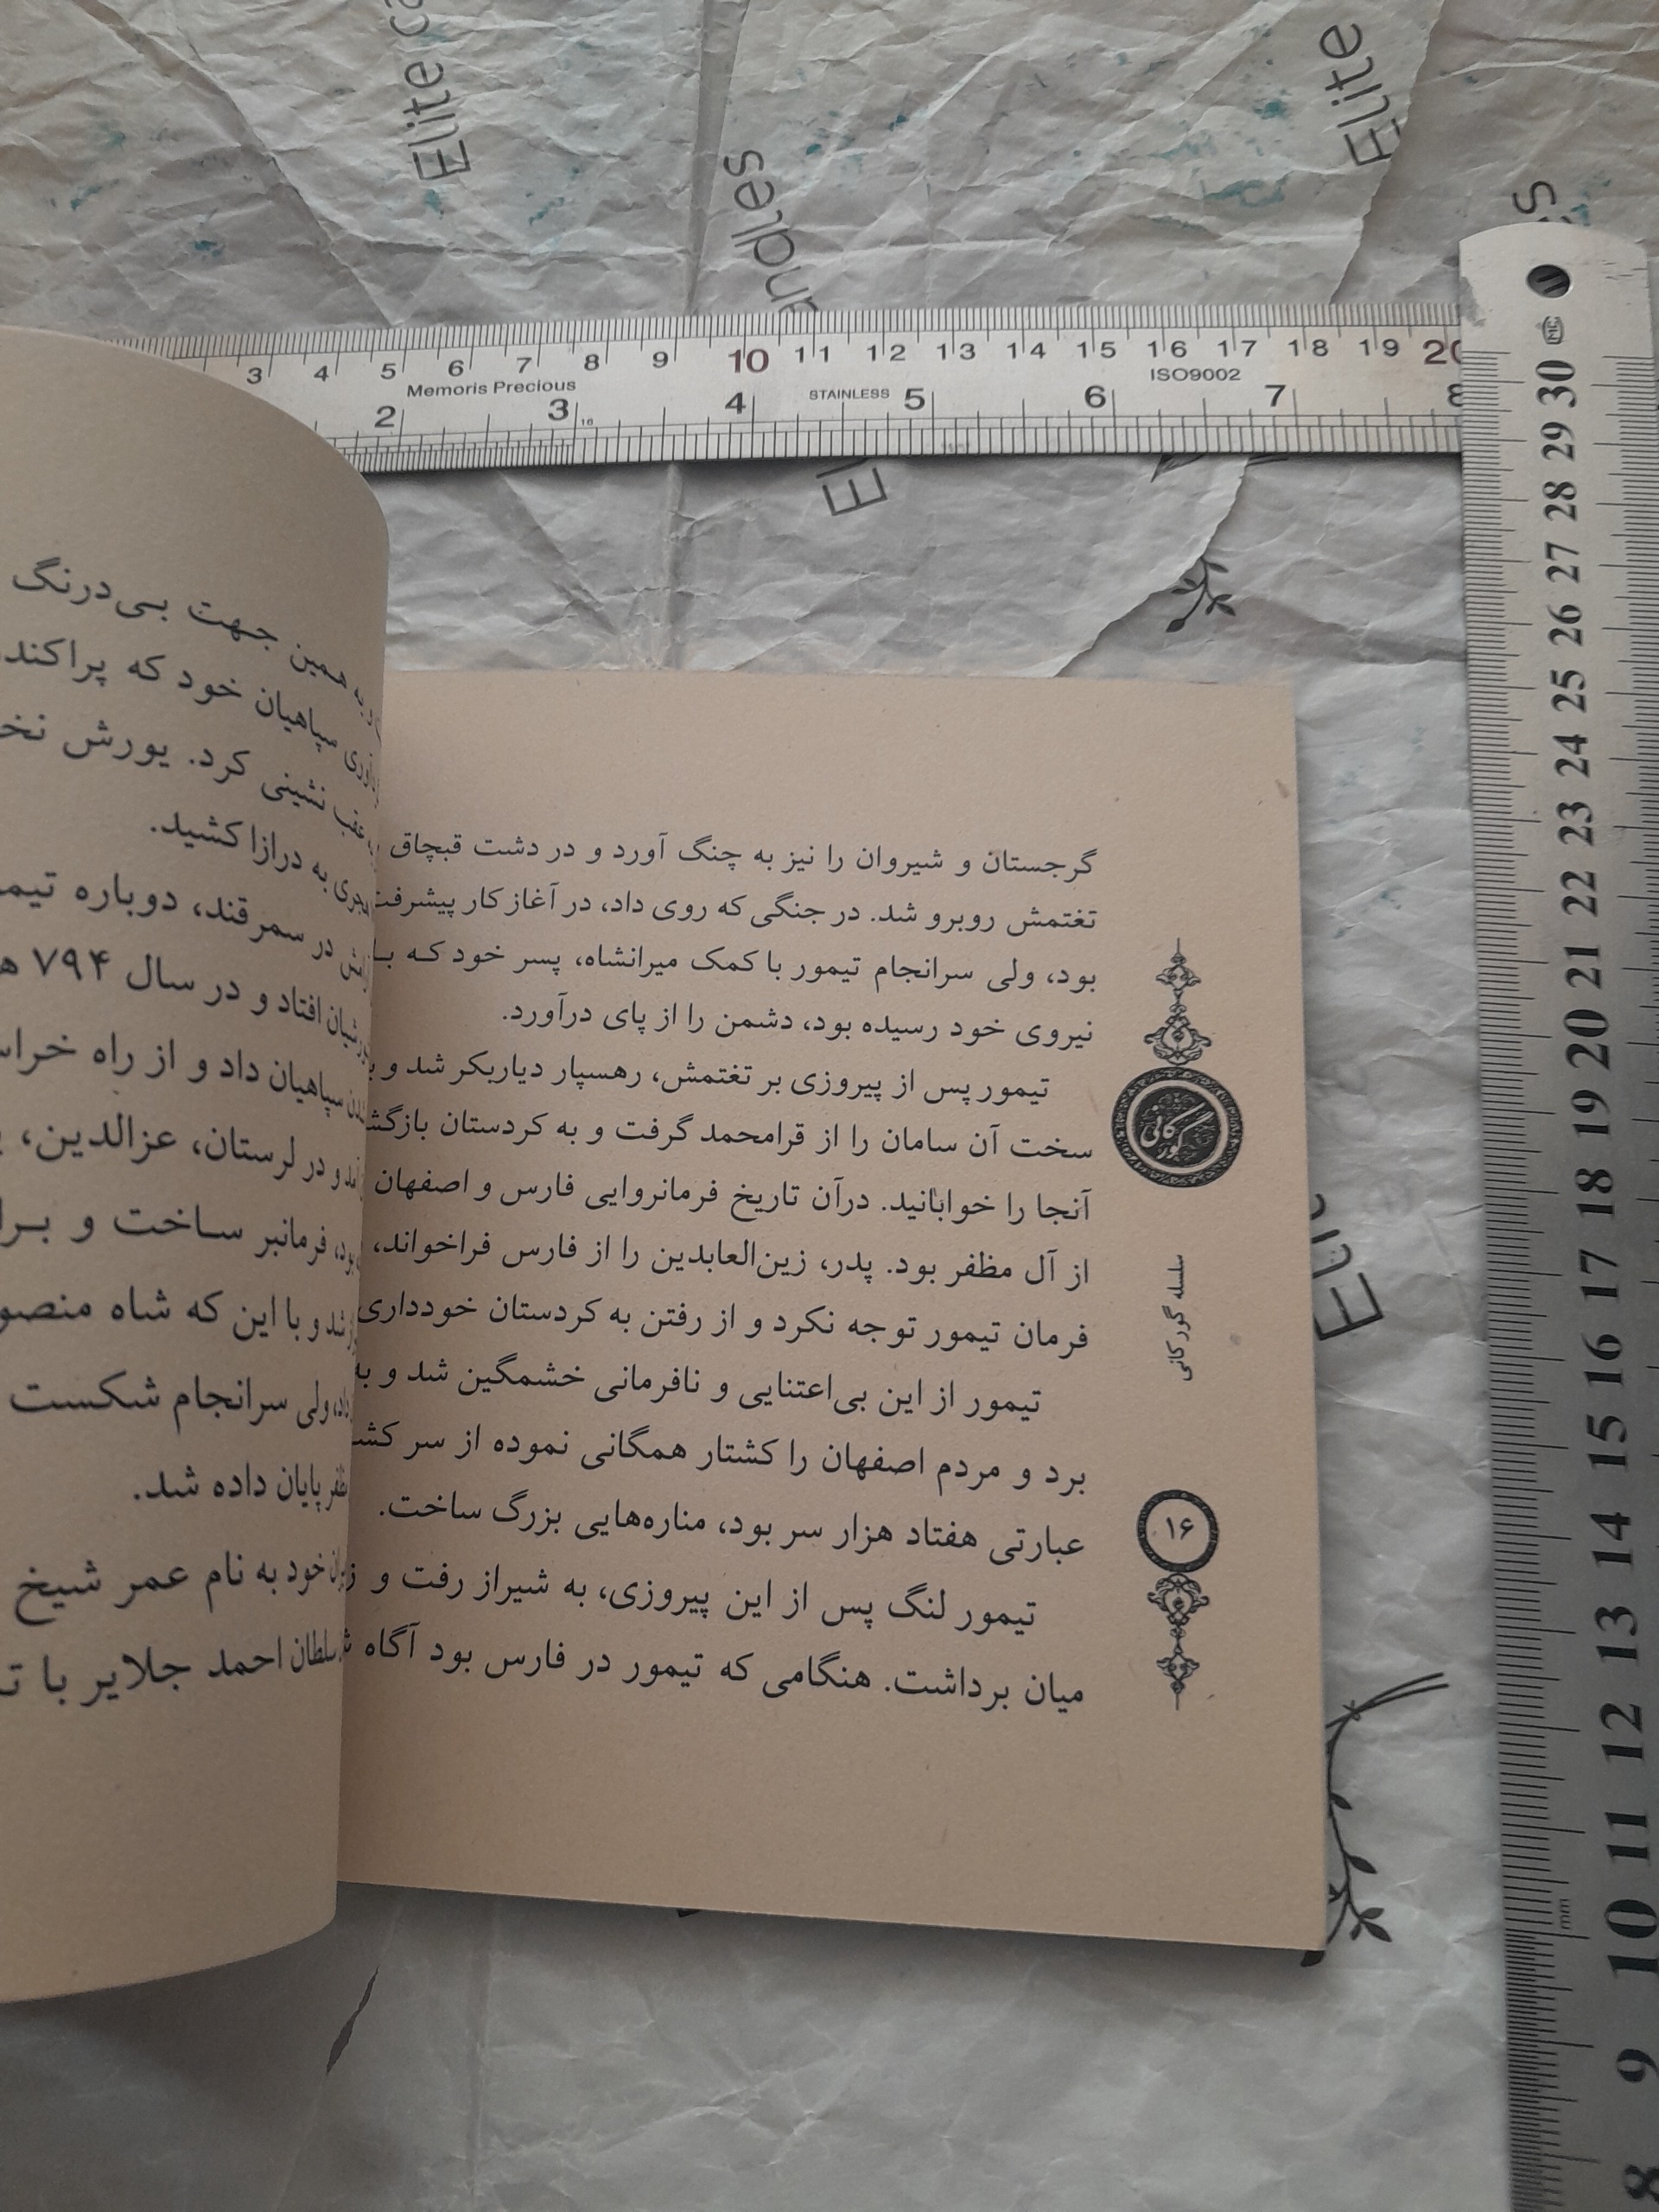 Elite
Elite
ndles
3 4 5 6 7 8 9 10 11 12 13 14 15 16 17 18 19
Memoris Precious
STAINLESS
ISO9002
2 3 4 5 6 7 8
30 29 28 27 26 25 24 23 22 21 20 19 18 17 16 15 14 13 12 11 10 9 8
mm
گرجستان و شیروان را نیز به چنگ آورد و در دشت قبچاق
تغتمش روبرو شد. در جنگی که روی داد، در آغاز کار پیشرفت
بود، ولی سرانجام تیمور با کمک میرانشاه، پسر خود که با
نیروی خود رسیده بود، دشمن را از پای درآورد.
تیمور پس از پیروزی بر تغتمش، رهسپار دیاربکر شد و
سخت آن سامان را از قرامحمد گرفت و به کردستان
آنجا را خوابانید. درآن تاریخ فرمانروایی فارس و اصفهان
از آل مظفر بود. پدر، زین‌العابدین را از فارس فراخواند،
فرمان تیمور توجه نکرد و از رفتن به کردستان خودداری
تیمور از این بی‌اعتنایی و نافرمانی خشمگین شد و به
برد و مردم اصفهان را کشتار همگانی نموده از سر
عبارتی هفتاد هزار سر بود، مناره‌هایی بزرگ ساخت.
تیمور لنگ پس از این پیروزی، به شیراز رفت و
میان برداشت. هنگامی که تیمور در فارس بود آگاه
گورکانی
سلسله گورکانی
۱۶
به همین جهت بی‌درنگ
سپاهیان خود که
عقب نشینی کرد. یورش
به درازا کشید.
در سمرقند، دوباره
افتاد و در سال ۷۹۴
سپاهیان داد و از راه
و در لرستان، عزالدین،
بود، فرمانبر ساخت و
شد و با این که شاه
ولی سرانجام شکست
پایان داده شد.
خود به نام عمر شیخ
سلطان احمد جلایر با